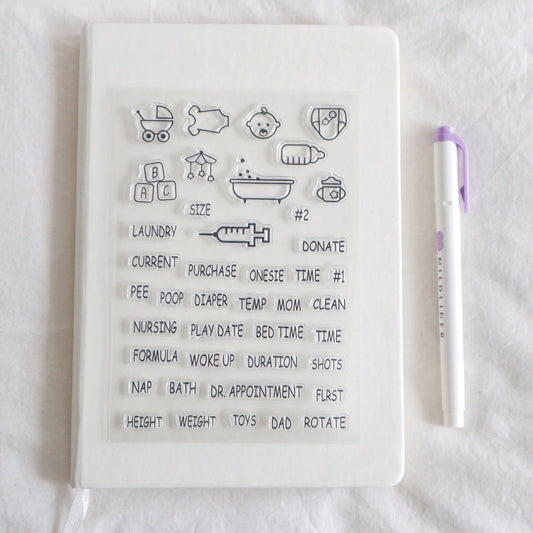 B
A C
SIZE #2
LAUNDRY
DONATE
CURRENT
PURCHASE ONESIE TIME #1
PEE POOP DIAPER TEMP MOM CLEAN
NURSING PLAY DATE BED TIME TIME
FORMULA WOKE UP DURATION SHOTS
NAP BATH DR. APPOINTMENT FLRST
HEIGHT WEIGHT TOYS DAD ROTATE
MILDLINER